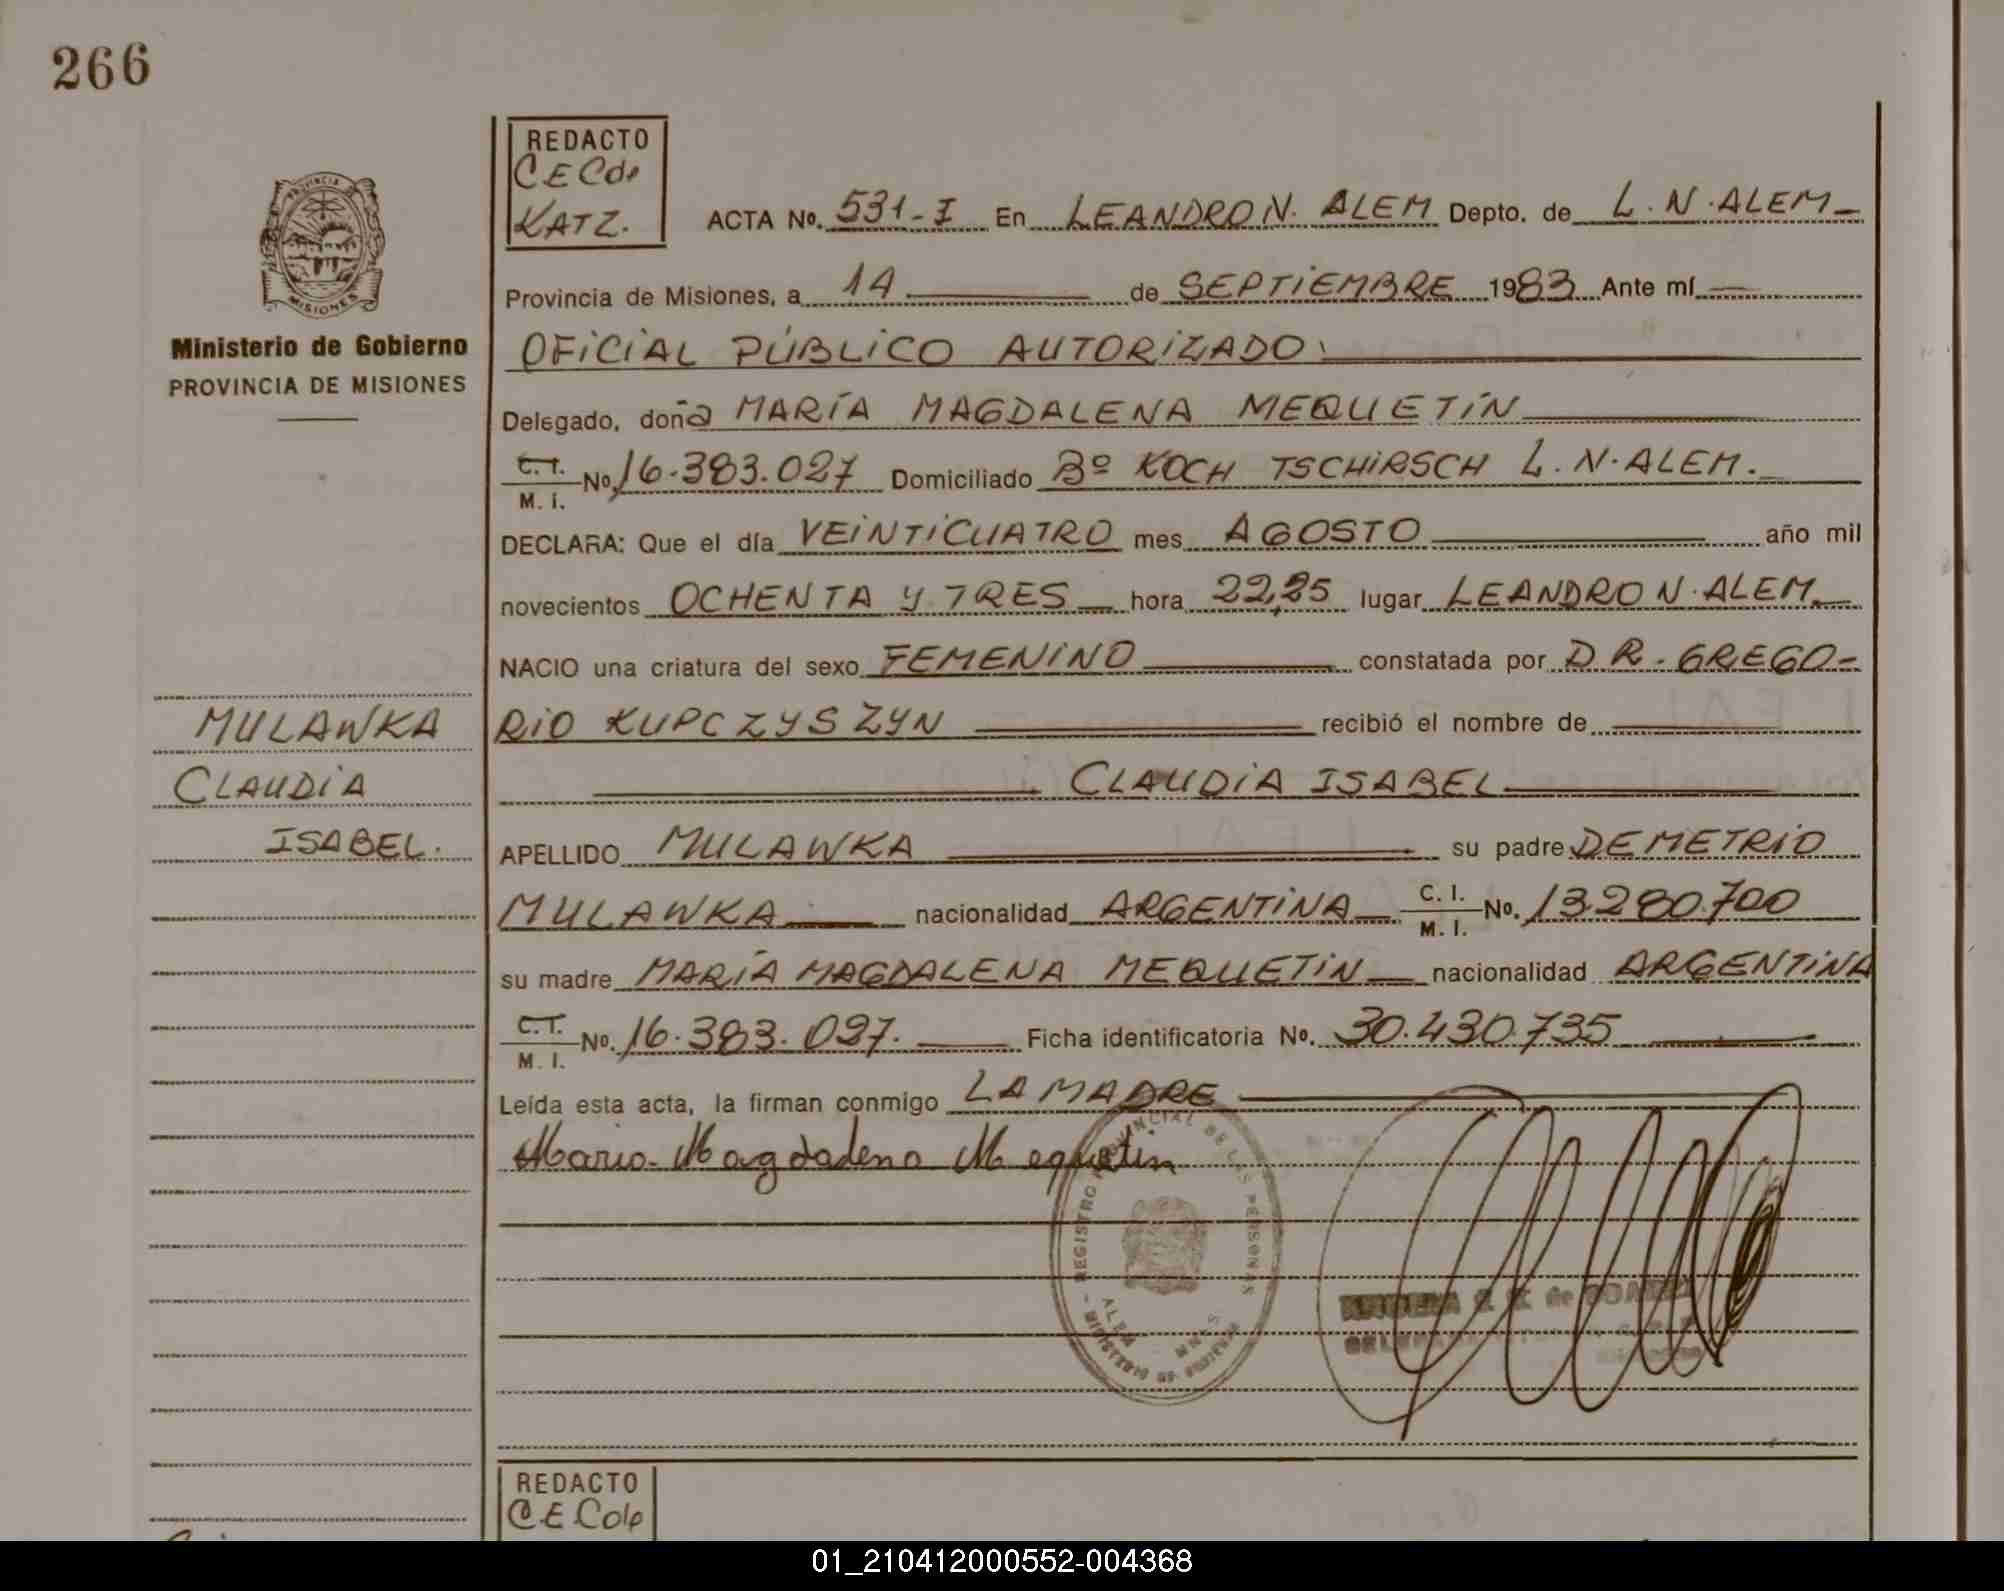 266
REDACTO
C E C de
KATZ.
ACTA No. 531-I En LEANDRO N. ALEM Depto. de L. N. ALEM
PROVINCIA DE
MISIONES
Provincia de Misiones, a 14 de SEPTIEMBRE 1983 Ante mí
Ministerio de Gobierno
PROVINCIA DE MISIONES
OFICIAL PÚBLICO AUTORIZADO
Delegado, doña MARÍA MAGDALENA MEQUETIN
C. I. / M. I. No. 16.383.027 Domiciliado Bº KOCH TSCHIRSCH L. N. ALEM.
DECLARA: Que el día VEINTICUATRO mes AGOSTO año mil
novecientos OCHENTA Y TRES hora 22,25 lugar LEANDRO N. ALEM
NACIO una criatura del sexo FEMENINO constatada por DR. GREGO-
RIO KUPCZYSZYN recibió el nombre de
CLAUDIA ISABEL
MULAWKA
CLAUDIA
ISABEL.
APELLIDO MULAWKA su padre DEMETRIO
MULAWKA nacionalidad ARGENTINA C. I. / M. I. No. 13.280.700
su madre MARÍA MAGDALENA MEQUETIN nacionalidad ARGENTINA
C. I. / M. I. No. 16.383.027. Ficha identificatoria No. 30.430.735
Leída esta acta, la firman conmigo LA MADRE
Maria Magdalena Mequetin
REGISTRO PROVINCIAL DE LAS PERSONAS
ALEM MNES
MINISTERIO DE GOBIERNO
REDACTO
C E C de
01_210412000552-004368